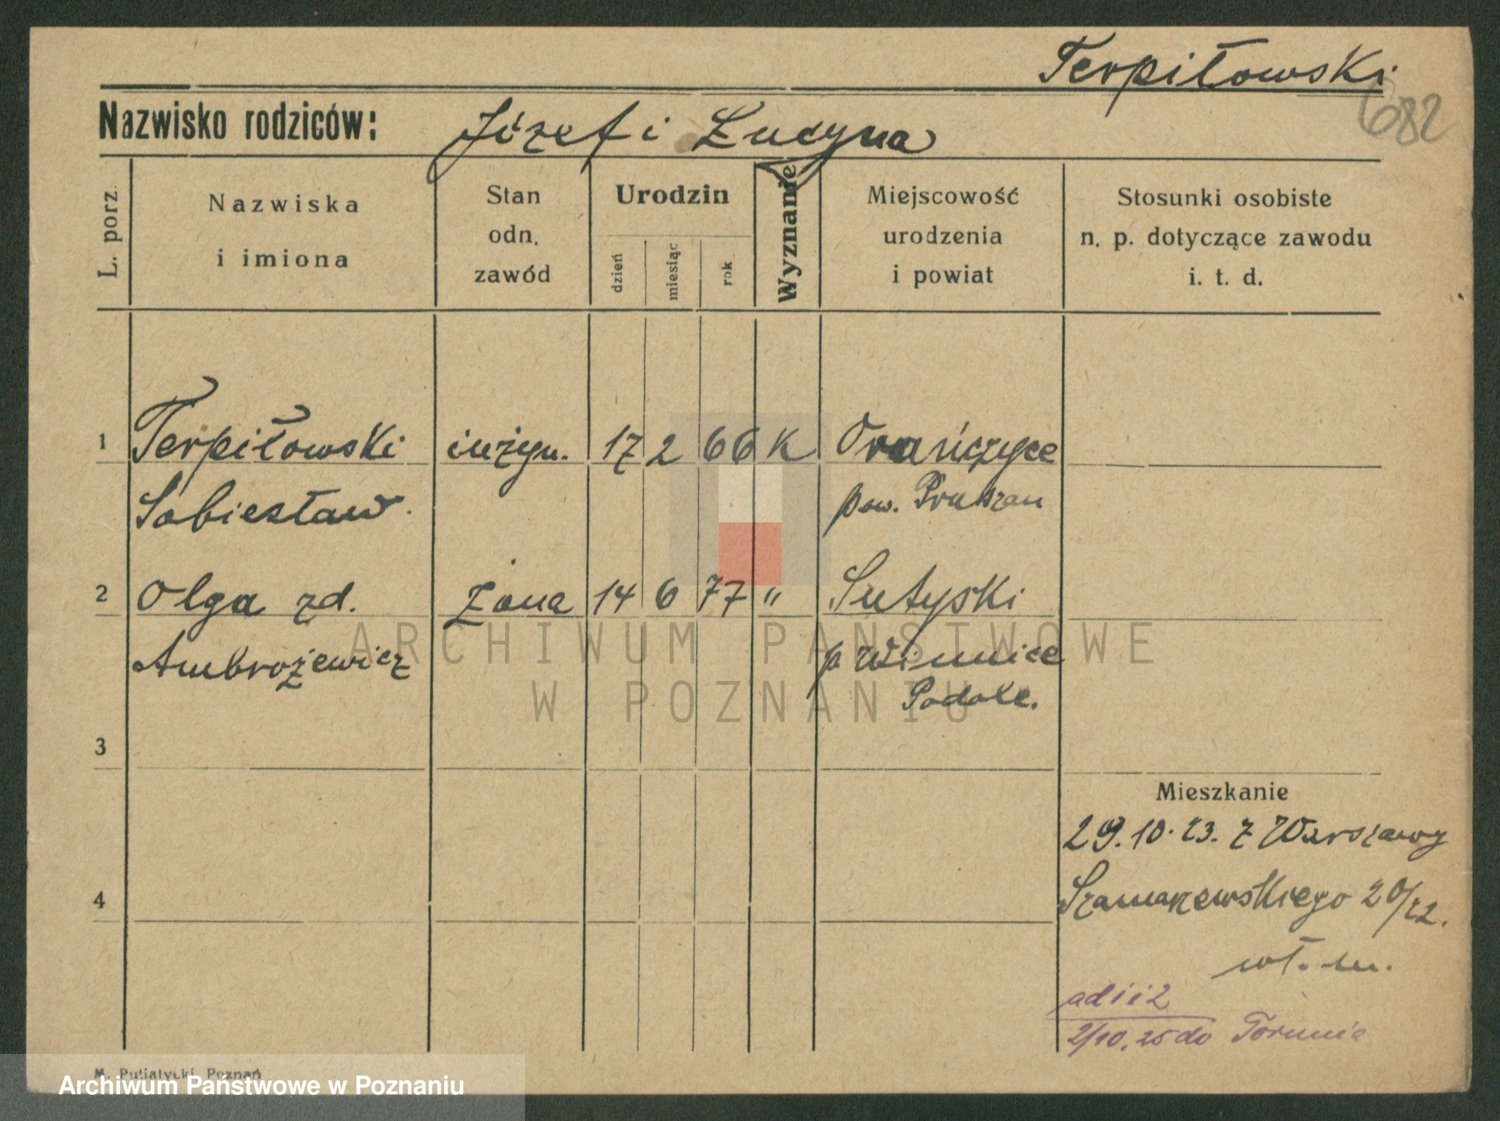 Terpiłowski
682
Nazwisko rodziców: Józef i Lucyna
L. porz.
Nazwiska
i imiona
Stan
odn.
zawód
Urodzin
dzień
miesiąc
rok
Wyznanie
Miejscowość
urodzenia
i powiat
Stosunki osobiste
n. p. dotyczące zawodu
i. t. d.
1 Terpiłowski inżyn. 17 2 66 K Orańczyce
Sobiesław pow. Prużan
2 Olga zd. żona 14 6 77 " Sutyski
Ambrożewicz p Winnice
Podole.
3
Mieszkanie
29.10.23. z Warszawy
4
Szamarzewskiego 20/22.
wł. m.
ad 1 i 2
2/10.25 do Torunia
M. Putiatycki Poznań
ARCHIWUM PAŃSTWOWE
W POZNANIU
Archiwum Państwowe w Poznaniu